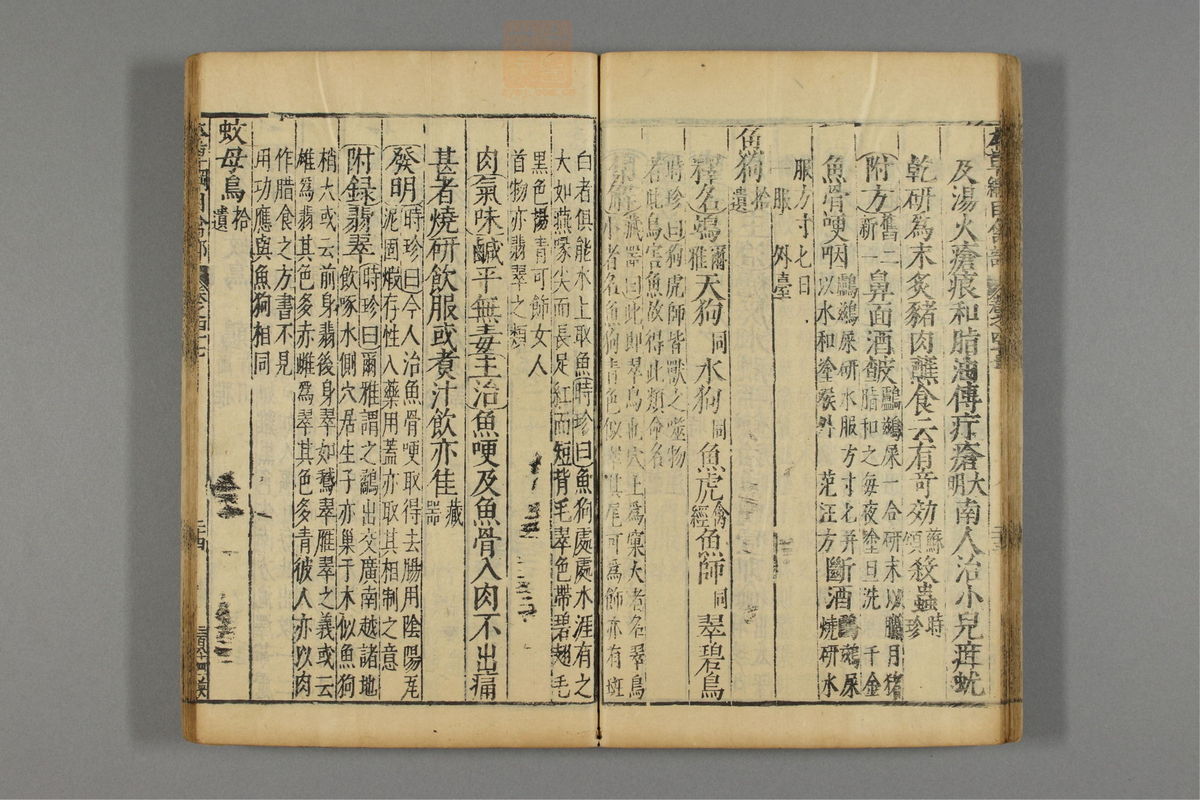 及湯火瘡痕和脂油傅疔瘡大明南人治小兒疳蚘
乾研為末炙豬肉蘸食云有奇効蘇頌殺蟲時珍
附方舊二新一鼻面酒皻鸕鷀屎一合研末以臘月豬脂和之每夜塗旦洗千金
魚骨哽咽鸕鷀屎研水服方寸匕并以水和塗喉外范汪方斷酒鸕鷀屎燒研水
服方寸匕日服外臺
魚狗拾遺
釋名鴗爾雅天狗同水狗同魚虎禽經魚師同翠碧鳥
時珍曰狗虎師皆獸之噬物
者此鳥害魚故得此類命名
集解藏器曰此即翠鳥也穴土為窠大者名翠鳥
小者名魚狗青色似翠其尾可為飾亦有斑
白者俱能水上取魚時珍曰魚狗處處水涯有之
大如燕喙尖而長足紅而短背毛翠色帶碧翅毛
黑色揚青可飾女人
首物亦翡翠之類
肉氣味鹹平無毒主治魚哽及魚骨入肉不出痛
甚者燒研飲服或煮汁飲亦佳藏器
發明時珍曰今人治魚骨哽取得去腸用陰陽瓦
泥固煅存性入藥用蓋亦取其相制之意
附録翡翠時珍曰爾雅謂之鷸出交廣南越諸地
飲啄水側穴居生子亦巢于木似魚狗
稍大或云前身翡後身翠如鵞翠雁翠之義或云
雄為翡其色多赤雌為翠其色多青彼人亦以肉
作腊食之方書不見
用功應與魚狗相同
蚊母鳥拾遺